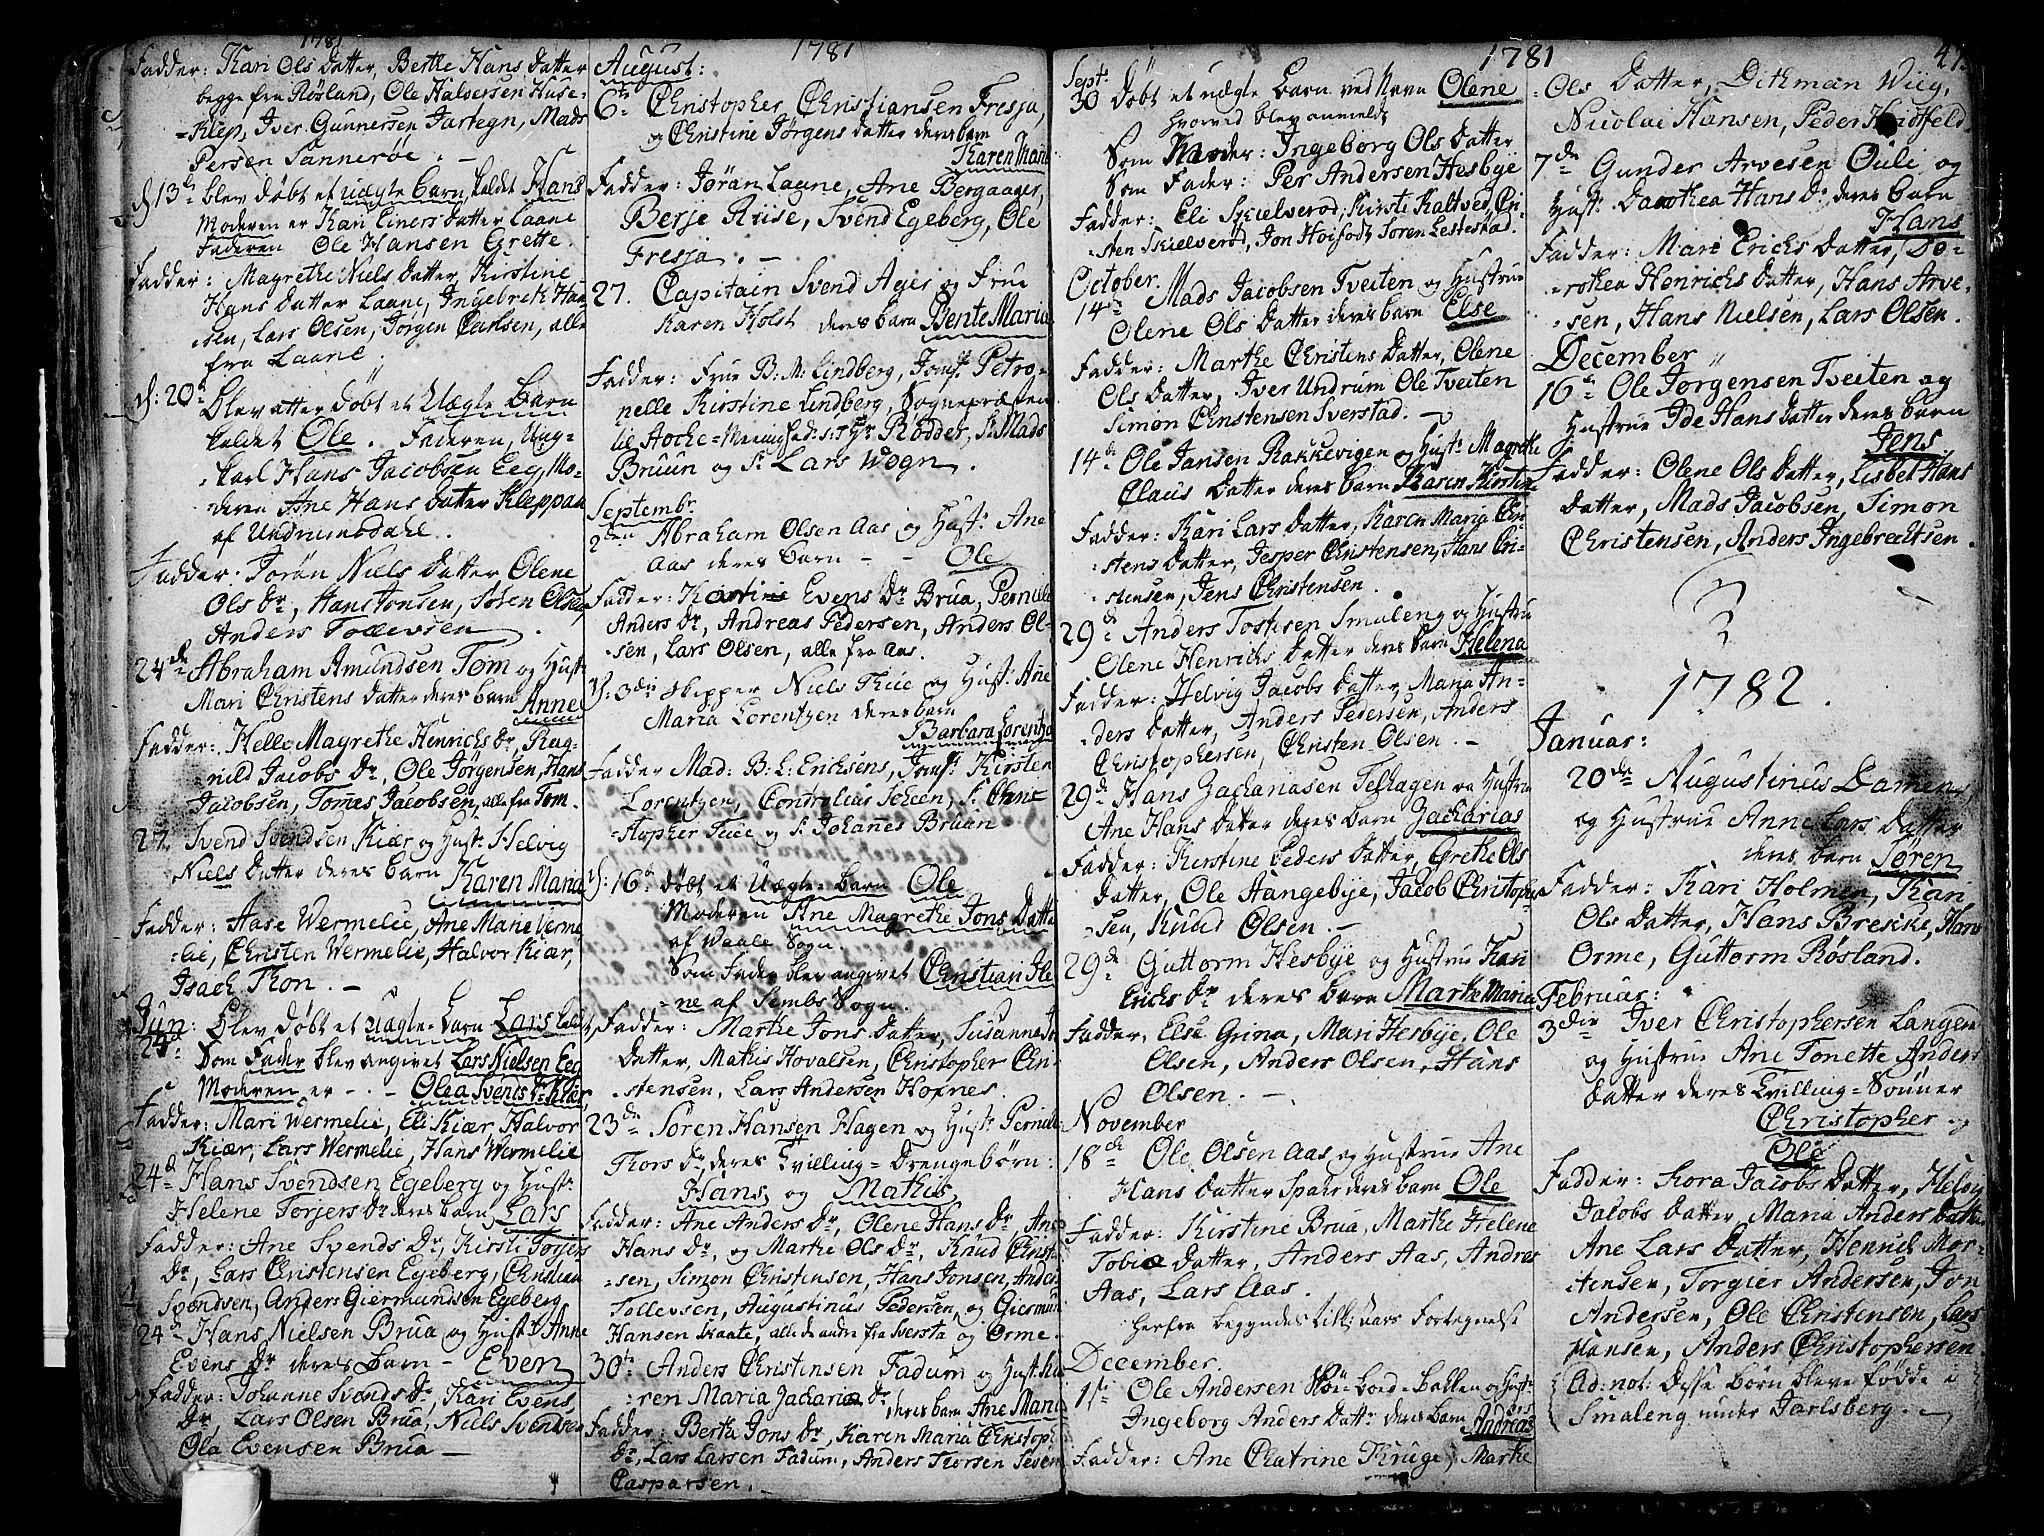 1781
Fadder: Kari Ols Datter, Berthe Hans Datter
begge fra Røsland, Ole Halversen Huse-
Klep, Iver Gunnersen Jartegn, Mads
Persen Sannerøe.
d. 13de blev døbt et uægte barn, kaldet Hans
Moderen er Kari Einers Datter Laane
Faderen Ole Hansen Egrette.
Fadder: Magrethe Niels Datter, Kirstine
Hans Datter Laane, Ingebreth Han-
sen, Lars Olsen, Jørgen Carlsen, alle
fra Laane.
d: 20de
blev atter døbt et Uægte Barn
kaldet Ole. Faderen, Ung-
karl Hans Jacobsen Eeg, Mo-
deren Ane Hans Datter Kleppan
af Undrumsdahl.
Fadder: Jorån Niels Datter Olene
Ols Dr, Hans Jonsen, Søren Olsen
Anders Tollevsen
24de Abraham Amundsen Tom og Hust:
Mari Christens Datter deres barn
Anne
Fadder: Helle Magrethe Henrichs Dr, Rag-
nild Jacobs Dr, Ole Jørgensen, Hans
Jacobsen, Tomas Jacobsen, alle fra Tom.
27. Svend Svendsen Kiær og Hust: Helvig
Niels Datter deres barn
Karen Maria
Fadder: Aase Wermelie, Ane Marie Verme-
lie, Christen Wermelie, Halvor Kiær,
Isach Thon.
Jun: blev døbt et uægte barn Lars kaldet,
24de Som Fader blev angivet Lars Nielsen Eeg
Moderen er - - Olea Svends Dr Kiær,
Fadder: Mari Wermelie, Eli Kiær, Halvor
Kiær, Lars Wermelie, Hans Wermelie
24d Hans Svendsen Egeberg og Hust:
Helene Torjers Dr deres barn Lars
Fadder: Ane Svends Dr, Kirsti Torjers
Dr, Lars Christensen Egeberg, Christian
Svendsen, Anders Giermundsen Egeberg
24d Hans Nielsen Brua og Hust: Anne
Evens Dr deres Barn - Even
Fadder: Johanne Svends Dr, Kari Evens
Dr, Lars Olsen Brua, Niels Svendsen
Ola Evensen Brua
1781
August:
6te Christopher Christiansen Fresja,
og Christine Jørgens datter deres barn
Karen Maria
Fadder: Jørån Laane, Ane Bergaager,
Berje Riise, Svend Egeberg, Ole
Fresja.
27. Capitain Svend Ager og Frue
Karen Holst deres barn Bente Maria
Fadder: Frue B: M: Lindberg, Jomf: Petro-
nelle Kirstine Lindberg, Sognepræsten
Hr Rødder, Sr Mads
Bruun og Sr Lars Wogn.
Septembr
2den Abraham Olsen Aas og Hust: Ane
Aas deres barn - - Ole
Fadder: Evens Dr Brua, Pernille
Anders Dr, Andreas Pedersen, Anders Ol-
sen, Lars Olsen, alle fra Aas.
d: 3die Skipper Niels Thue og Hust: Ane
Maria Lorentzen deres barn
Barbara Lorentze
Fadder Mad: B: L: Ericksens, Jomf: Kirsten
Lorentzen, Scheen, Sr Chri-
stopher Tuce og Sr Johannes Bruun
d: 16de døbt et Uægte barn Ole
Moderen Ane Magrethe Jons Datter
af Waale Sogn.
Som Fader blev angivet Christian Ile-
ne af Sembs Sogn.
Fadder: Marthe Jons Datter, Susanne
Datter, Mathis Hovalsen, Christopher Chri-
stensen, Lars Andersen Hopnes.
23de Søren Hansen Hagen og Hust: Pernille
Thors Dr, deres Tvilling-Drengebørn:
Hans og Mathis
Fadder: Ane Anders Dr, Olene Hans Dr, Ane
Hans Dr, og Marthe Ols Dr, Knud Christ-
sen, Simon Christensen, Hans Jonsen, Anders
Tollevsen, Augustinus Pedersen, og Giermun
Hansen Skaate, alle de andre fra Sversta og Orme.
30te Anders Christensen Fadum og Hust: Ka-
ren Maria Jacharia Dr, deres barn Ane Maria
Fadder: Bertha Jons Dr, Karen Maria Christoph
Dr, Lars Larsen Fadum, Anders Thorsen Seven
Casparsen.
1781
Sept:
30 Døbt et uægte Barn ved Navn Olene
hvorved blev anmeldt
Som Moder: Ingeborg Ols Datter
Som Fader: Per Andersen Hesbye
Fadder: Eli Skielverød, Kirsti Kaltved, Chri-
sten Skielverød, Jon Hoifodt, Søren Lestestad.
October.
14de Mads Jacobsen Tveiten og Hustrue
Olene Ols Datter deres barn Else
Fadder: Marthe Christens Datter, Olene
Ols Datter, Iver Undrum Ole Tveiten
Simon Christensen Sverstad.
14de Ole Jansen Rakkevigen og Hust: Magrethe
Claus Datter deres barn Karen Kirstine
Fadder: Kari Lars Datter, Karen Maria Chri-
stens Datter, Jesper Christensen, Hans Chri-
stensen, Jens Christensen.
29de Anders Tostesen Smaleng og Hustru
Olene Henrichs Datter deres barn Helena
Fadder: Helvig Jacobs Datter, Maria An-
ders Datter, Anders Pedersen, Anders
Christophersen, Christen Olsen.
29de Hans Zachariasen Teshagen og Hustru
Ane Hans Datter deres barn Zacharias
Fadder: Kirstine Peders Datter, Grethe Ols
Datter, Ole Aangebye, Jacob Christopher-
sen, Knud Olsen.
29de Guttorm Hesbye og Hustrue Kari
Erichs Dr deres barn Marthe Maria
Fadder, Else Grina, Mari Hesbye, Ole
Olsen, Anders Olsen, Hans
Olsen.
November
18de Ole Olsen Aas og Hustrue Ane
Hans Datter Spakr deres barn Ole
Fadder: Kirstine Brua, Marthe Helene
Tobiæ Datter, Anders Aas, Andres
Aas, Lars Aas.
Herfra begyndes till: Aars Fortegnelse
December.
1ste Ole Andersen Bord-Bakken og Hust:
Ingeborg Anders Datr deres barn Andreas
Fadder: Ane Chatrine Kruge, Marthe
47.
Ols Datter, Dithman Wiig,
Nicolai Hansen, Peder Hadfeld.
7de Gunder Arvesen Ouli og
Hust: Dorothea Hans Dr deres barn
Hans
Fadder: Mari Erichs Datter, Do-
rothea Henrichs Datter, Hans Arve-
sen, Hans Nielsen, Lars Olsen.
December
16de Ole Jørgensen Tveiten og
Hustrue Ide Hans Datter deres barn
Jens
Fadder: Olene Ols Datter, Lisbet Hans
Datter, Mads Jacobsen, Simon
Christensen, Anders Ingebrechtsen.
1782.
Januar:
20de Augustinus Damen,
og Hustrue Anne Lars Datter
deres barn Søren
Fadder: Kari Holmen, Kari
Ols Datter, Hans Brekke, Hans
Orme, Guttorm Røsland.
Februar:
3die Iver Christophersen Langen
og Hustrue Ane Tonette Anders
Datter deres Tvilling-Sønner
Christopher og
Ole
Fadder: Kora Jacobs Datter, Helvig
Jacobs Datter, Maria Anders Datter
Ane Lars Datter, Henrich Mor-
tensen, Torgier Andersen, Jon
Andersen, Ole Christensen, Lars
Hansen, Anders Christophersen.
Ad: not: Disse børn bleve fødde i
Smaleng under Jarlsberg.